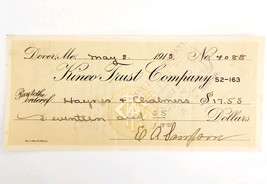 Dover, Me. May 3. 1915. No. 4088
Kineo Trust Company 52-163
Pay to the order of Haynes & Chalmers $17.55
Seventeen and 55/100 Dollars
E A Sampson